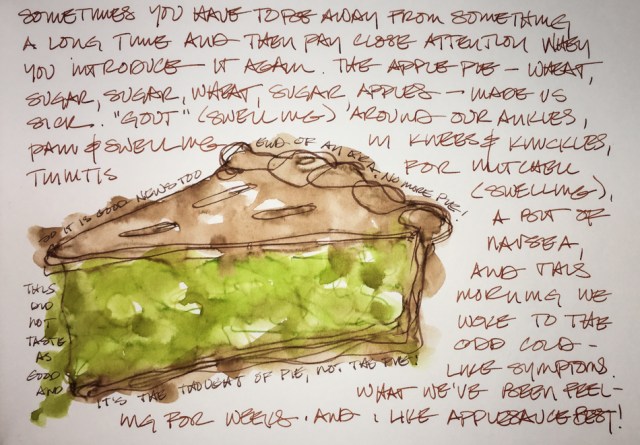 SOMETIMES YOU HAVE TO BE AWAY FROM SOMETHING
A LONG TIME AND THEN PAY CLOSE ATTENTION WHEN
YOU INTRODUCE IT AGAIN. THE APPLE PIE - WHEAT,
SUGAR, SUGAR, WHEAT, SUGAR APPLES - MADE US
SICK. "GOUT" (SWELLING) AROUND OUR ANKLES,
PAIN & SWELLING IN KNEES & KNUCKLES,
TINNITIS FOR MITCHELL
(SWELLING),
A BOUT OF
NAUSEA,
AND THIS
MORNING WE
WOKE TO THE
ODD COLD-
LIKE SYMPTOMS.
WHAT WE'VE BEEN FEEL-
ING FOR WEEKS. AND I LIKE APPLESAUCE BEST!
SO IT IS GOOD NEWS TOO
END OF AN ERA. NO MORE PIE!
THIS
DID
NOT
TASTE
AS
GOOD
AND
IT'S THE THOUGHT OF PIE, NOT THE PIE!